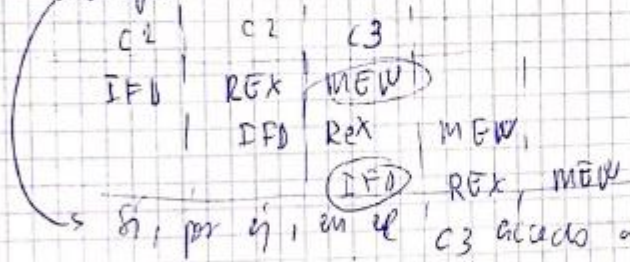 C2 C2 C3
IFD REX MEW
IFD REX MEW,
IFD REX, MEW
Si, por ej, en el C3 accedo a